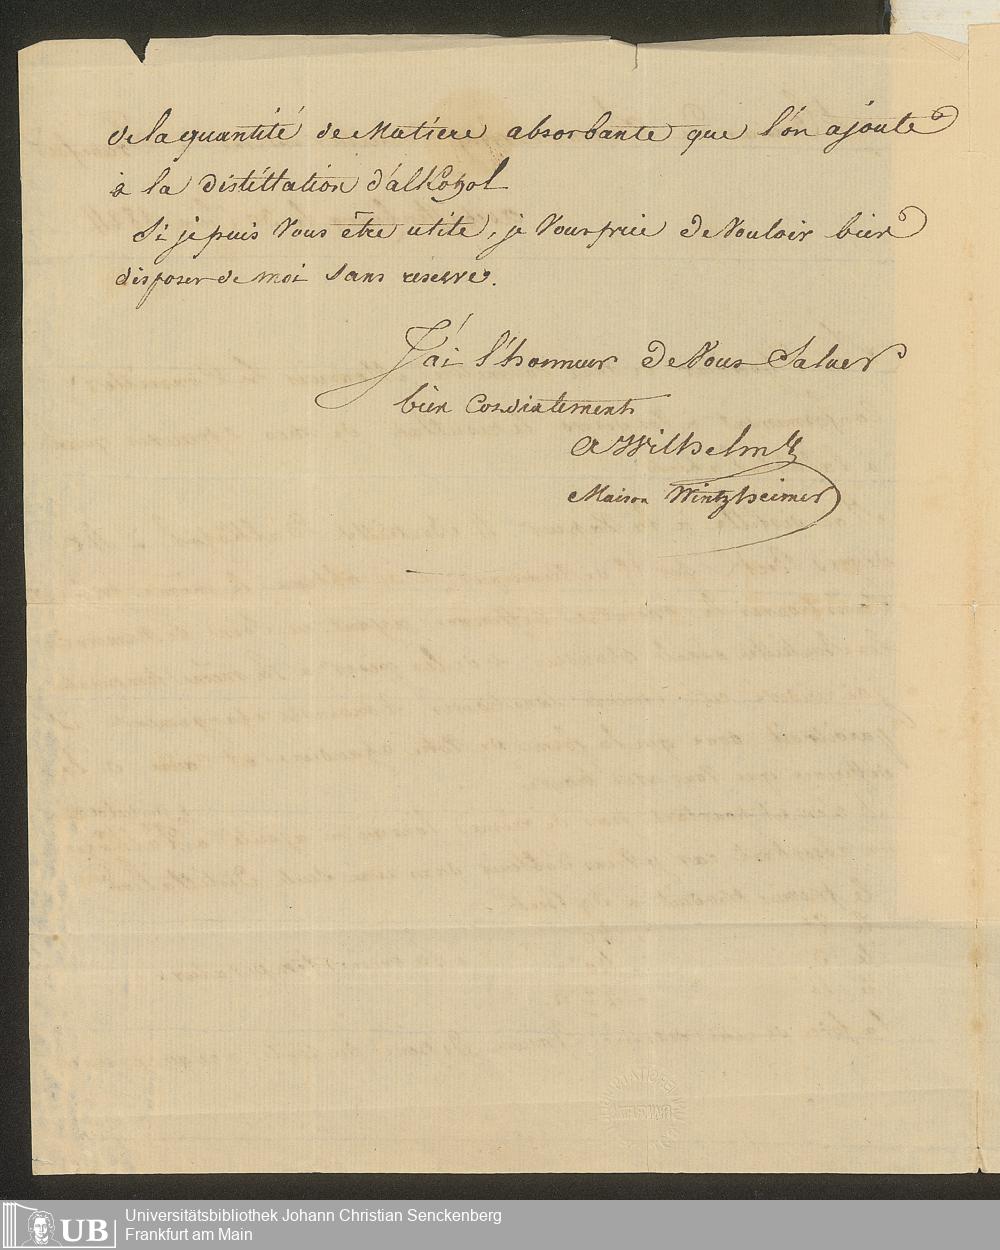 de la quantité de Matiere absorbante que l'on ajoute
à la distillation d'alkohol
Si je puis Vous être utile, je Vous prie de Vouloir bien
disposer de moi sans réserve.
J'ai l'honneur de Vous Saluer
bien Cordialement
A Wilhelm
Maison Wintzheimer
Universitätsbibliothek Johann Christian Senckenberg
UB Frankfurt am Main